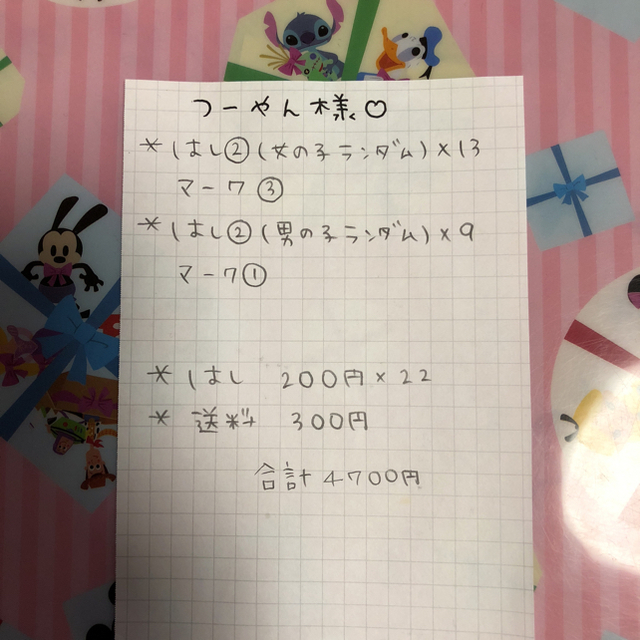 つーやん様♡
*はし②(女の子ランダム)×13
マーク③
*はし②(男の子ランダム)×9
マーク①
*はし 200円×22
*送料 300円
合計4700円